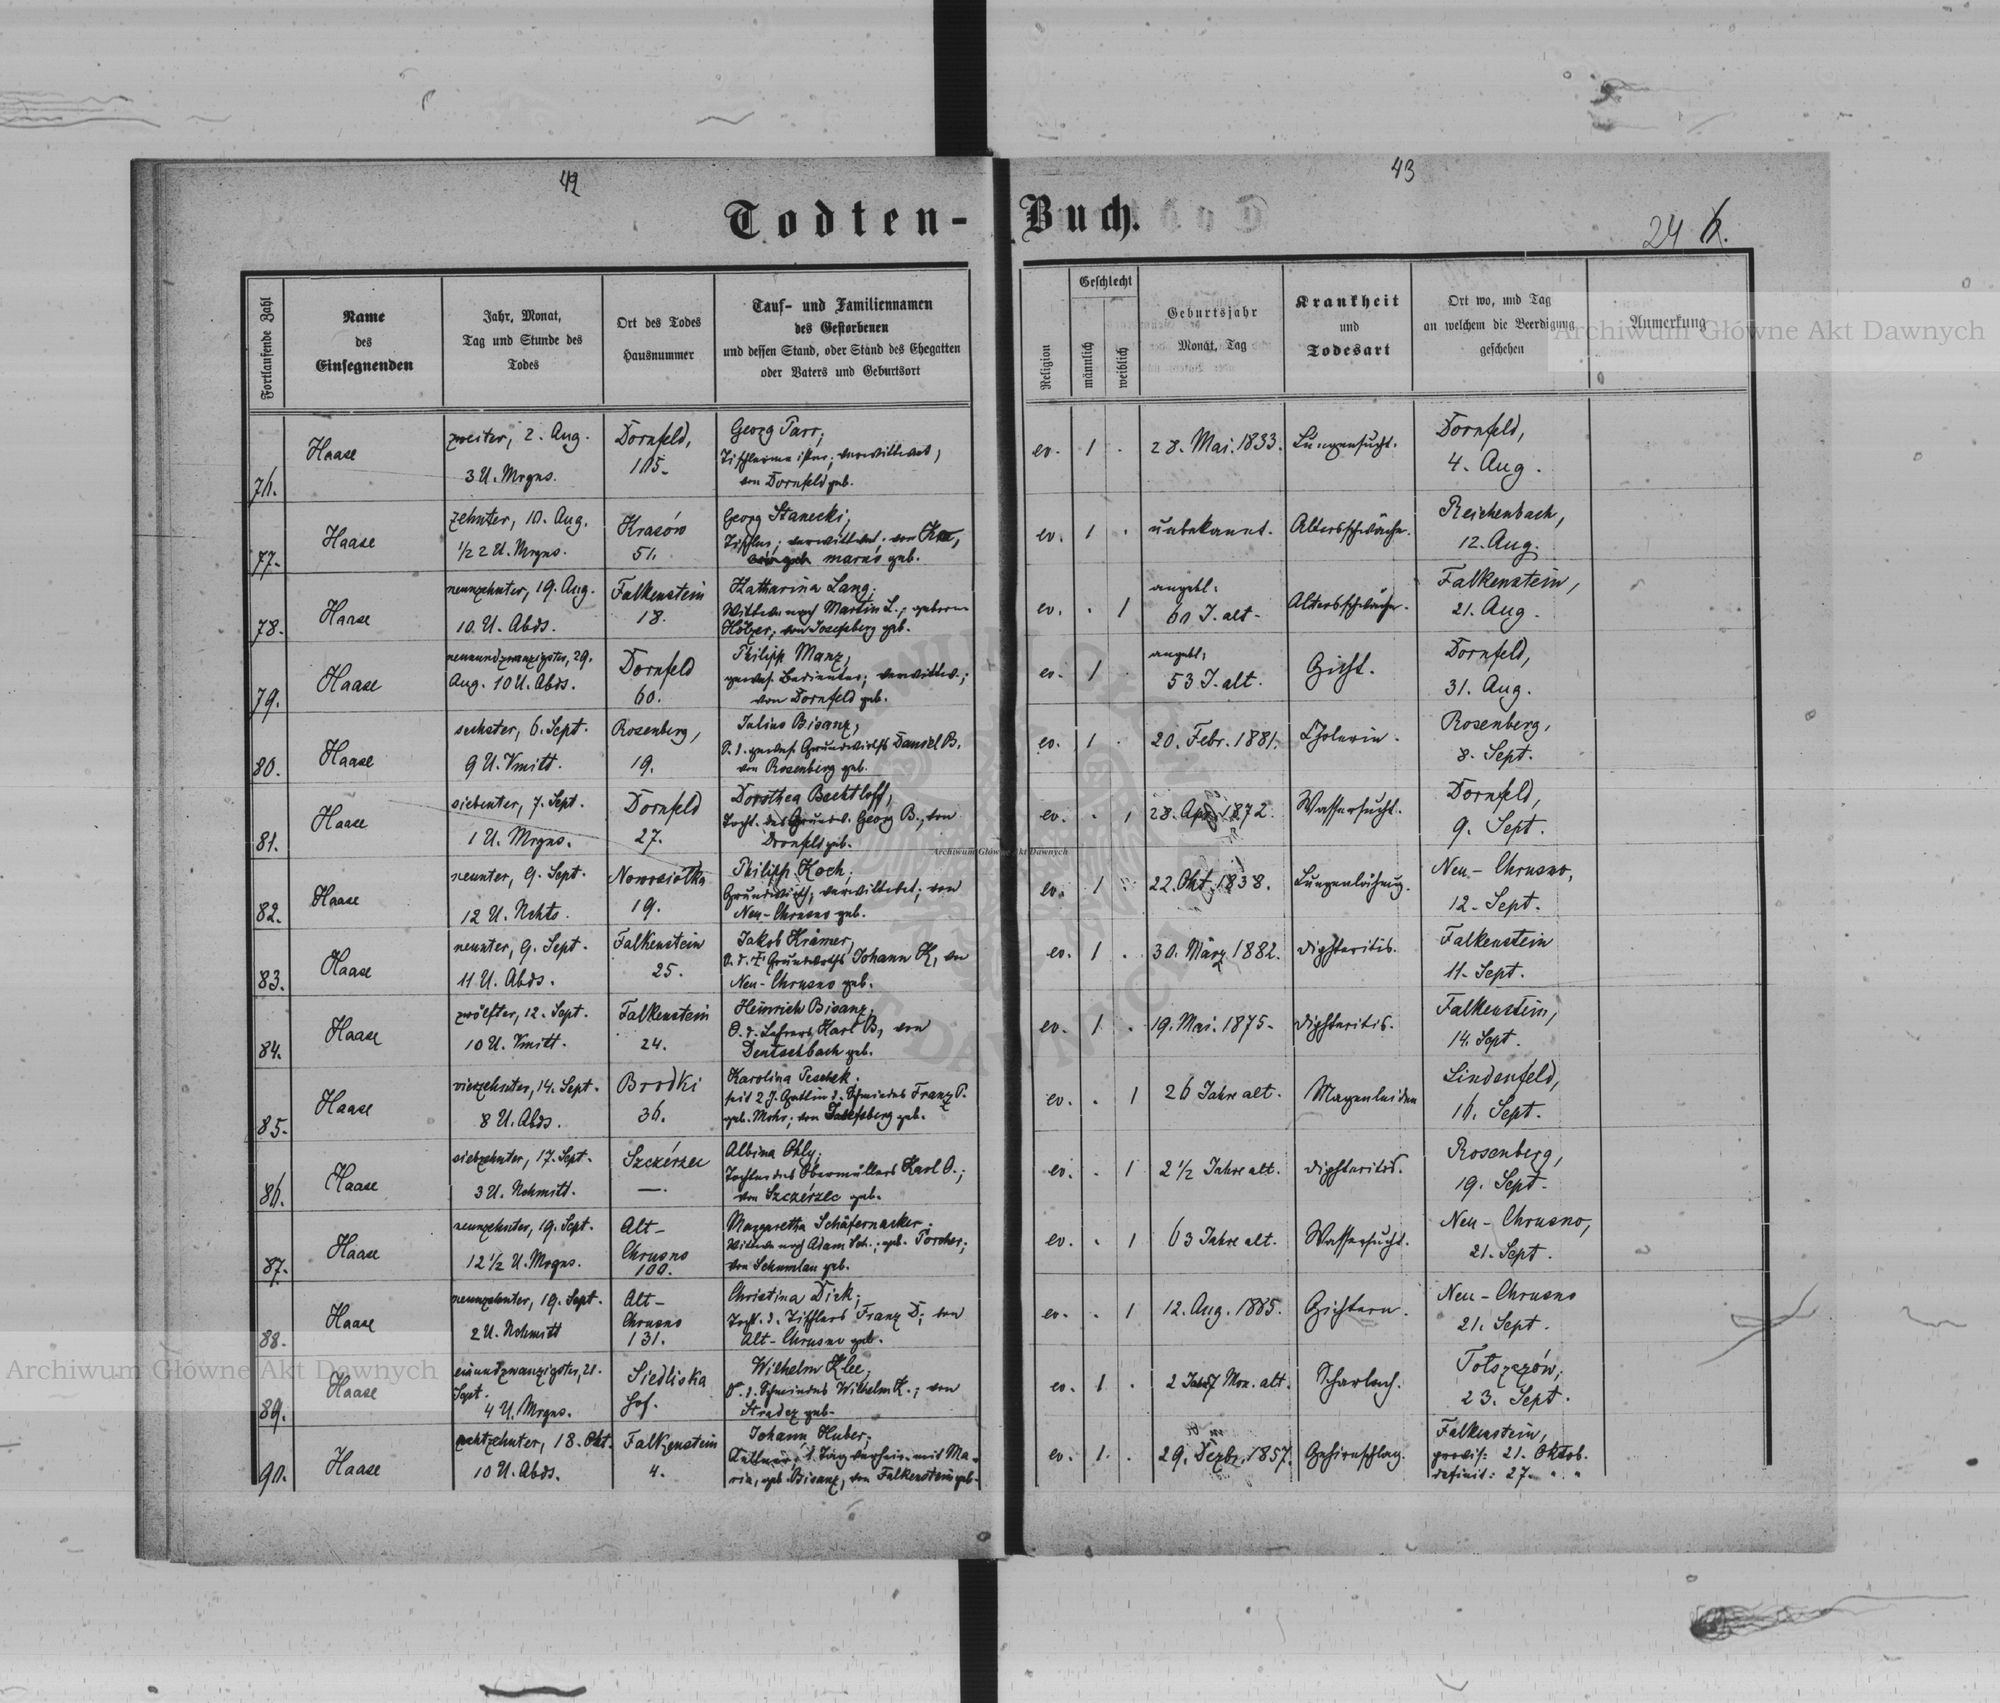 42
43
Todten-Buch.
24
Fortlaufende Zahl
Name
des
Einsegnenden
Jahr, Monat,
Tag und Stunde des
Todes
Ort des Todes
Hausnummer
Tauf- und Familiennamen
des Gestorbenen
und dessen Stand, oder Stand des Ehegatten
oder Vaters und Geburtsort
Religion
Geschlecht
männlich
weiblich
Geburtsjahr
Monat, Tag
Krankheit
und
Todesart
Ort wo, und Tag
an welchem die Beerdigung
geschehen
Anmerkung
76.
Haase
zweiter, 2. Aug.
3 U. Mrgns.
Dornfeld,
105.
Georg Parr,
Tischlermeister; verwittwet,
von Dornfeld geb.
ev. 1 .
28. Mai. 1833.
Lungensucht.
Dornfeld,
4. Aug.
77.
Haase
zehnter, 10. Aug.
1/2 2 U. Mrgns.
Krasów
51.
Georg Stanecki,
Tischler; verwittwet. von
geb.
ev. 1 .
unbekannt.
Altersschwäche.
Reichenbach,
12. Aug.
78.
Haase
neunzehnter, 19. Aug.
10. U. Abds.
Falkenstein
18.
Katharina Lang,
Wittwe nach Martin L.; geborne
Hölzer, von Josefsberg geb.
ev. . 1
angebl.
60 J. alt.
Altersschwäche.
Falkenstein,
21. Aug.
79.
Haase
neunundzwanzigster, 29.
Aug. 10 U. Abds.
Dornfeld
60.
Philipp Manz,
gewes. Bedienter; verwittw.;
von Dornfeld geb.
ev. 1 .
angebl.
53 J. alt.
Gicht.
Dornfeld,
31. Aug.
80.
Haase
sechster, 6. Sept.
9 U. Vmitt.
Rosenberg,
19.
Julius Bisanz,
S. d. gewes. Grundwirths Daniel B.
von Rosenberg geb.
ev. 1 .
20. Febr. 1881.
Cholerin.
Rosenberg,
8. Sept.
81.
Haase
siebenter, 7. Sept.
1 U. Mrgns.
Dornfeld
27.
Dorothea Bechtloff,
Tocht. des Grundw. Georg B., von
Dornfeld geb.
ev. . 1
28. Apr. 1872.
Wassersucht.
Dornfeld,
9. Sept.
82.
Haase
neunter, 9. Sept.
12 U. Nchts.
Nowosiolka
19.
Philipp Koch,
Grundwirth; verwittwet; von
Neu-Chrusno geb.
ev. 1 .
22. Okt. 1838.
Lungenlähmung.
Neu-Chrusno,
12. Sept.
83.
Haase
neunter, 9. Sept.
11 U. Abds.
Falkenstein
25.
Jakob Krämer,
Grundwirths Johann K, von
Neu-Chrusno geb.
ev. 1 .
30. März 1882.
Diphteritis.
Falkenstein
11. Sept.
84.
Haase
zwölfter, 12. Sept.
10 U. Vmitt.
Falkenstein
24.
Heinrich Bisanz,
S. d. Lehrers Karl B, von
Deutschbach geb.
ev. 1 .
19. Mai. 1875.
Diphteritis.
Falkenstein,
14. Sept.
85.
Haase
vierzehnter, 14. Sept.
8 U. Abds.
Brodki
36.
Karolina Peschek,
seit 2 J. Gattin d. Schmiedes Franz P.
geb. Mohr; von Josefsberg geb.
ev. . 1
26 Jahre alt.
Magenleiden
Lindenfeld,
16. Sept.
86.
Haase
siebzehnter, 17. Sept.
3 U. Nchmitt.
Szckérzec
—.
Albina Ohly,
Tochter des Obermüllers Karl O.;
von Szczérzec geb.
ev. . 1
2 1/2 Jahre alt.
Diphteritis.
Rosenberg,
19. Sept.
87.
Haase
neunzehnter, 19. Sept.
12 1/2 U. Mrgns.
Alt-
Chrusno
100.
Margaretha Schäfernacker,
Wittwe nach Adam Sch.; geb. Porcher,
von Schumlau geb.
ev. . 1
63 Jahre alt.
Wassersucht.
Neu-Chrusno,
21. Sept.
88.
Haase
neunzehnter, 19. Sept.
2 U. Nchmitt
Alt-
Chrusno
131.
Christina Dick,
Tocht. d. Tischlers Franz D; von
Alt-Chrusno geb.
ev. . 1
12. Aug. 1885.
Gichtern.
Neu-Chrusno
21. Sept.
89.
Haase
einundzwanzigster, 21.
Sept.
4 U. Mrgns.
Siedliska
Hof.
Wilhelm Klee,
S. d. Schmiedes Wilhelm K.; von
Stradez geb.
ev. 1 .
2 Jahr 7 Mon. alt.
Scharlach.
Tolszczów,
23. Sept.
90.
Haase
achtzehnter, 18. Okt.
10 U. Abds.
Falkenstein
4.
Johann Huber,
mit Ma-
ria, geb. Bisanz, von Falkenstein geb.
ev. 1. .
29. Dezbr. 1857.
Gehirnschlag.
Falkenstein,
provis: 21. Oktob.
definit: 27. " "
Archiwum Główne Akt Dawnych
Archiwum Główne Akt Dawnych
Archiwum Główne Akt Dawnych